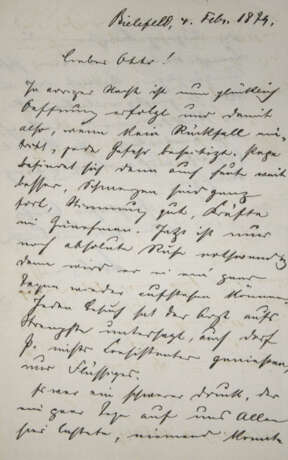 Bielefeld, 4. Febr. 1894.
Lieber Otto!
In voriger Nacht ist nun glücklich
Oeffnung erfolgt und damit
also, wenn kein Rückfall ein-
tritt, jede Gefahr beseitigt. Papa
befindet sich denn auch heute weit
besser, Schmerzen sind ganz
fort, Stimmung gut, Kräfte
im Zunehmen. Jetzt ist nur
noch absolute Ruhe nothwendig
dann wird er in ein paar
Tagen wieder aufstehen können.
Jeden Besuch hat der Arzt aufs
Strengste untersagt, auch darf
P. nichts Consistentes geniessen,
nur Flüssiges.
Es war ein schwerer Druck, der
ein paar Tage auf uns Allen
hier lastete, niemand konnte